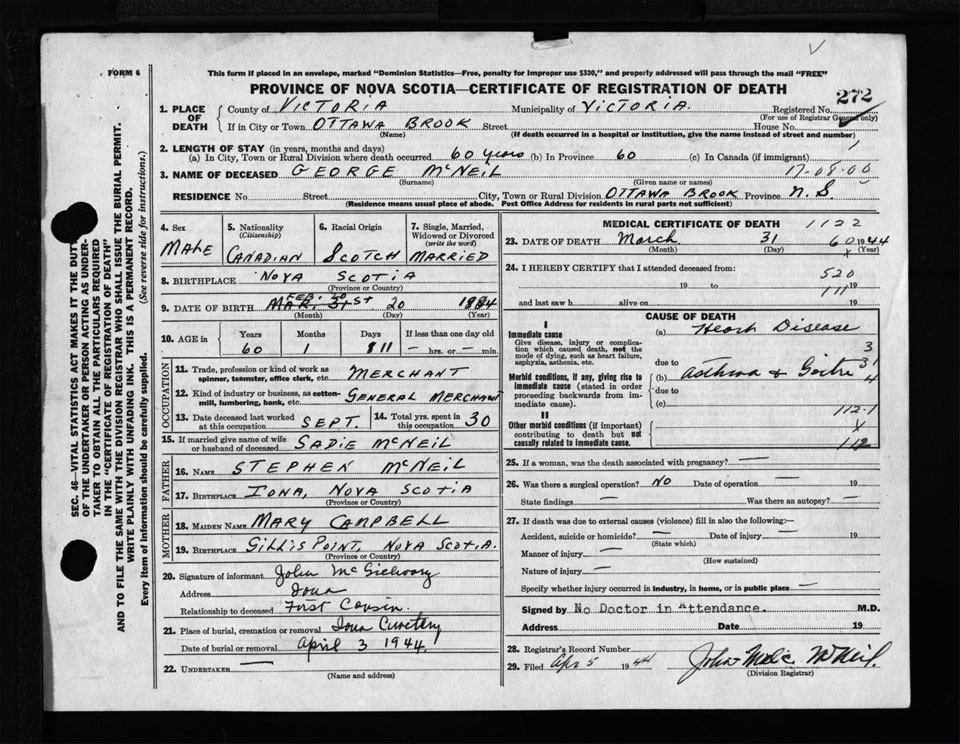 FORM 6
This form if placed in an envelope, marked "Dominion Statistics—Free, penalty for improper use $300," and properly addressed will pass through the mail "FREE"
PROVINCE OF NOVA SCOTIA—CERTIFICATE OF REGISTRATION OF DEATH
272
1. PLACE OF DEATH
County of VICTORIA Municipality of VICTORIA. Registered No.
(For use of Registrar General only)
If in City or Town OTTAWA BROOK Street House No.
(Name) (If death occurred in a hospital or institution, give the name instead of street and number)
2. LENGTH OF STAY (in years, months and days)
(a) In City, Town or Rural Division where death occurred 60 years (b) In Province 60 (c) In Canada (if immigrant) 1
3. NAME OF DECEASED GEORGE McNEIL 17-08-00
(Surname) (Given name or names)
RESIDENCE No. Street City, Town or Rural Division OTTAWA BROOK Province N.S.
(Residence means usual place of abode. Post Office Address for residents in rural parts not sufficient)
SEC. 46—VITAL STATISTICS ACT MAKES IT THE DUTY OF THE UNDERTAKER OR PERSON ACTING AS UNDERTAKER TO OBTAIN ALL THE PARTICULARS REQUIRED IN THE "CERTIFICATE OF REGISTRATION OF DEATH"
AND TO FILE THE SAME WITH THE DIVISION REGISTRAR WHO SHALL ISSUE THE BURIAL PERMIT.
WRITE PLAINLY WITH UNFADING INK. THIS IS A PERMANENT RECORD.
Every item of information should be carefully supplied. (See reverse side for instructions.)
4. Sex
MALE
5. Nationality
(Citizenship)
CANADIAN
6. Racial Origin
SCOTCH
7. Single, Married, Widowed or Divorced
(write the word)
MARRIED
8. BIRTHPLACE NOVA SCOTIA
(Province or Country)
9. DATE OF BIRTH FEB. 20 20 1884
(Month) (Day) (Year)
10. AGE in Years Months Days If less than one day old
60 1 11 — hrs. or — min.
OCCUPATION
11. Trade, profession or kind of work as spinner, teamster, office clerk, etc. MERCHANT
12. Kind of industry or business, as cotton-mill, lumbering, bank, etc. GENERAL MERCHANT
13. Date deceased last worked at this occupation SEPT. 14. Total yrs. spent in this occupation 30
15. If married give name of wife or husband of deceased SADIE McNEIL
FATHER
16. NAME STEPHEN McNEIL
17. BIRTHPLACE IONA, NOVA SCOTIA
(Province or Country)
MOTHER
18. MAIDEN NAME MARY CAMPBELL
19. BIRTHPLACE GILLIS POINT, NOVA SCOTIA.
(Province or Country)
20. Signature of informant John
Address Iona
Relationship to deceased First Cousin.
21. Place of burial, cremation or removal Iona Cemetery
Date of burial or removal April 3 1944.
22. UNDERTAKER —
(Name and address)
MEDICAL CERTIFICATE OF DEATH 1122
23. DATE OF DEATH March 31 60 1944
(Month) (Day) x (Year)
24. I HEREBY CERTIFY that I attended deceased from:
520
19 to 19
111
and last saw h alive on 19
CAUSE OF DEATH
I
Immediate cause
Give disease, injury or complication which caused death, not the mode of dying, such as heart failure, asphyxia, asthenia, etc.
(a) Heart Disease
3
due to
31
Morbid conditions, if any, giving rise to immediate cause (stated in order proceeding backwards from immediate cause).
(b) Asthma & Goitre
4
due to
(c)
112.1
II
Other morbid conditions (if important) contributing to death but not causally related to immediate cause.
x
112
25. If a woman, was the death associated with pregnancy? —
26. Was there a surgical operation? NO Date of operation — 19
State findings — Was there an autopsy? —
27. If death was due to external causes (violence) fill in also the following:—
Accident, suicide or homicide? — Date of injury — 19
(State which)
Manner of injury —
(How sustained)
Nature of injury —
Specify whether injury occurred in industry, in home, or in public place —
Signed by No Doctor in Attendance. M.D.
Address Date 19
28. Registrar's Record Number
29. Filed Apr 5 1944 John McNeil.
(Division Registrar)